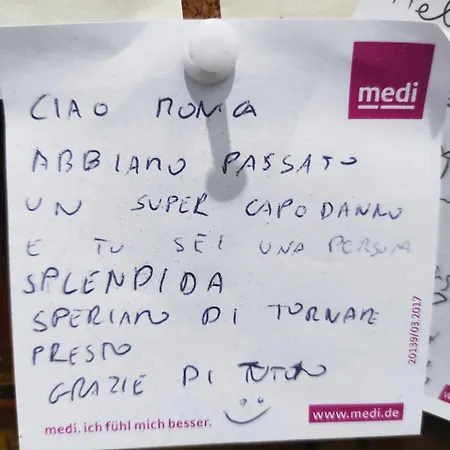 CIAO MONICA
medi
ABBIAMO PASSATO
UN SUPER CAPODANNO
E TU SEI UNA PERSONA
SPLENDIDA
SPERIAMO DI TORNARE
PRESTO
GRAZIE DI TUTTO
medi. ich fühl mich besser.
www.medi.de
20139/03.2017